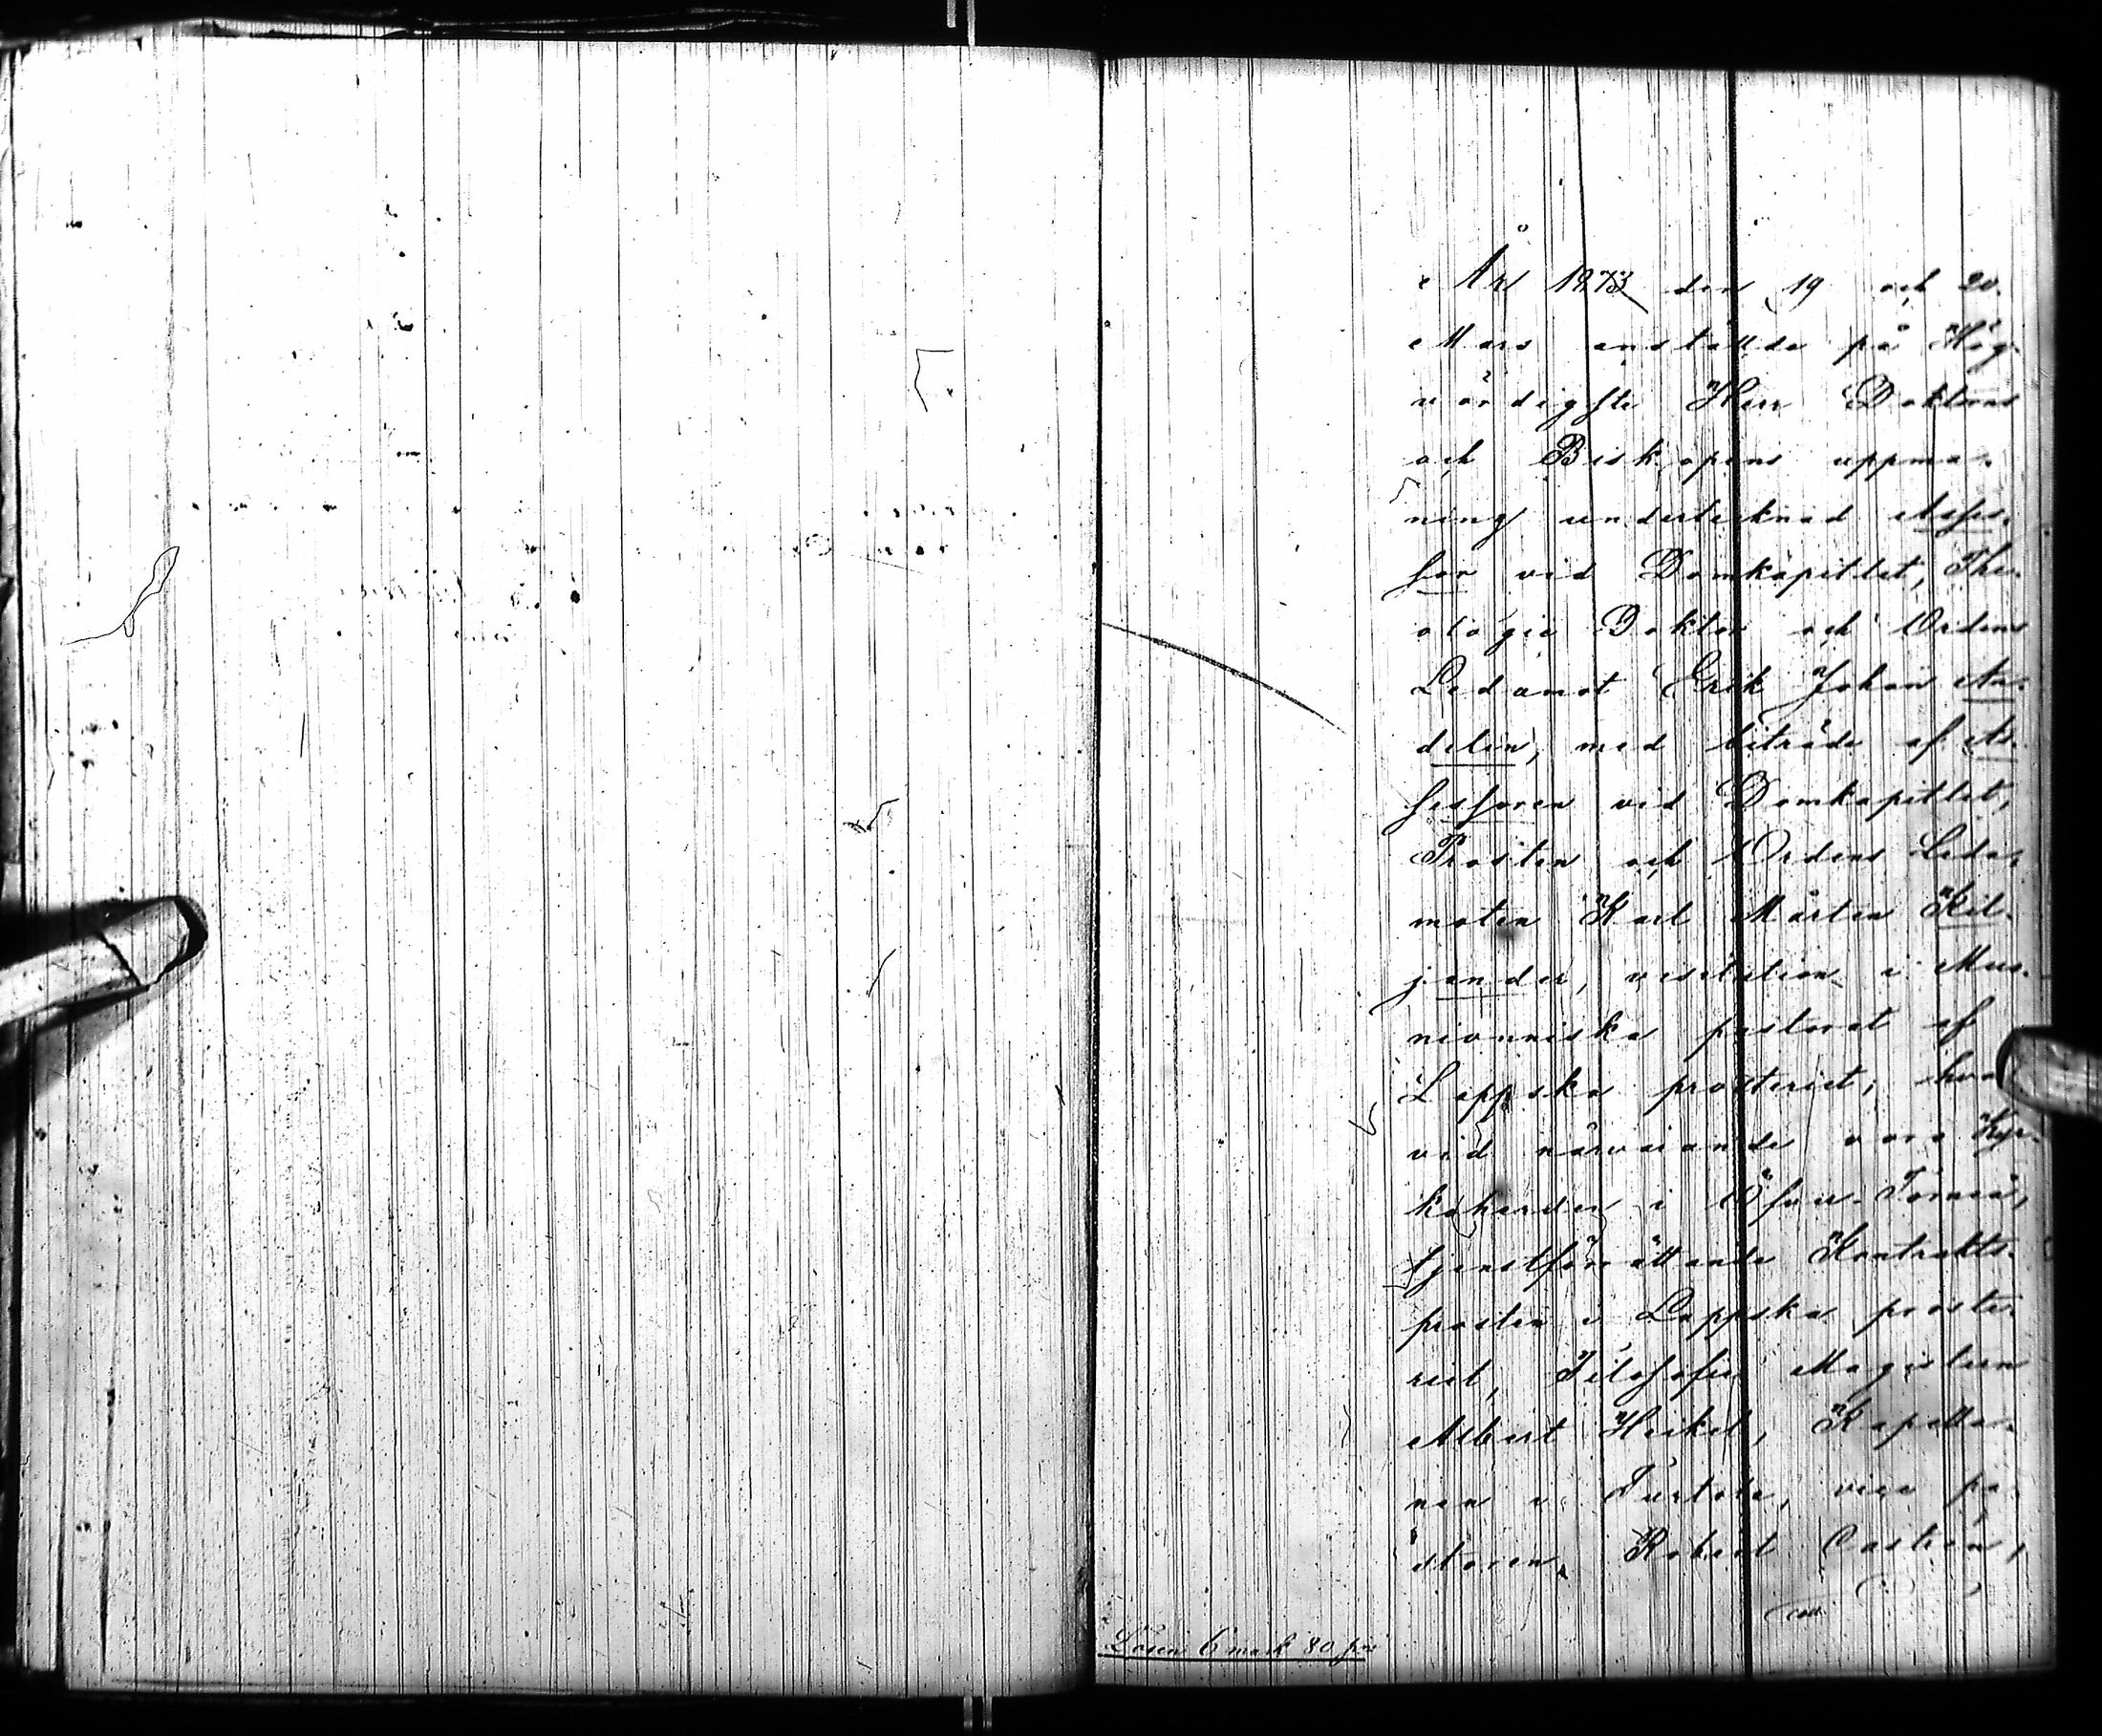 År 1873 den 19 och 20
Mars anställde på Hög-
vördigste Herr Doktorns
och Biskopens uppma-
ning undertecknad Asses-
sor vid Domkapitlet, The-
ologie Doktor och Ordens
Ledamot Erik Johan An-
delin, med biträde af As-
sessoren vid Domkapitlet,
Prosten och Ordens Leda-
moten Karl Mårten Kil-
jander, visitation i Muo-
nionniska pastorat af
Lappska prosteriet; hvar-
vid närvarande voro Kyr-
koherden i Öfver-Torneå,
tjenstförrättande Kontrakts-
prosten i Lappska proste-
riet, Filosofie Magistern
Albert Heikel, Kapella-
nen i Turtola, vice pa-
storen Robert Castrén,
Lösen 6 mark 80 pni